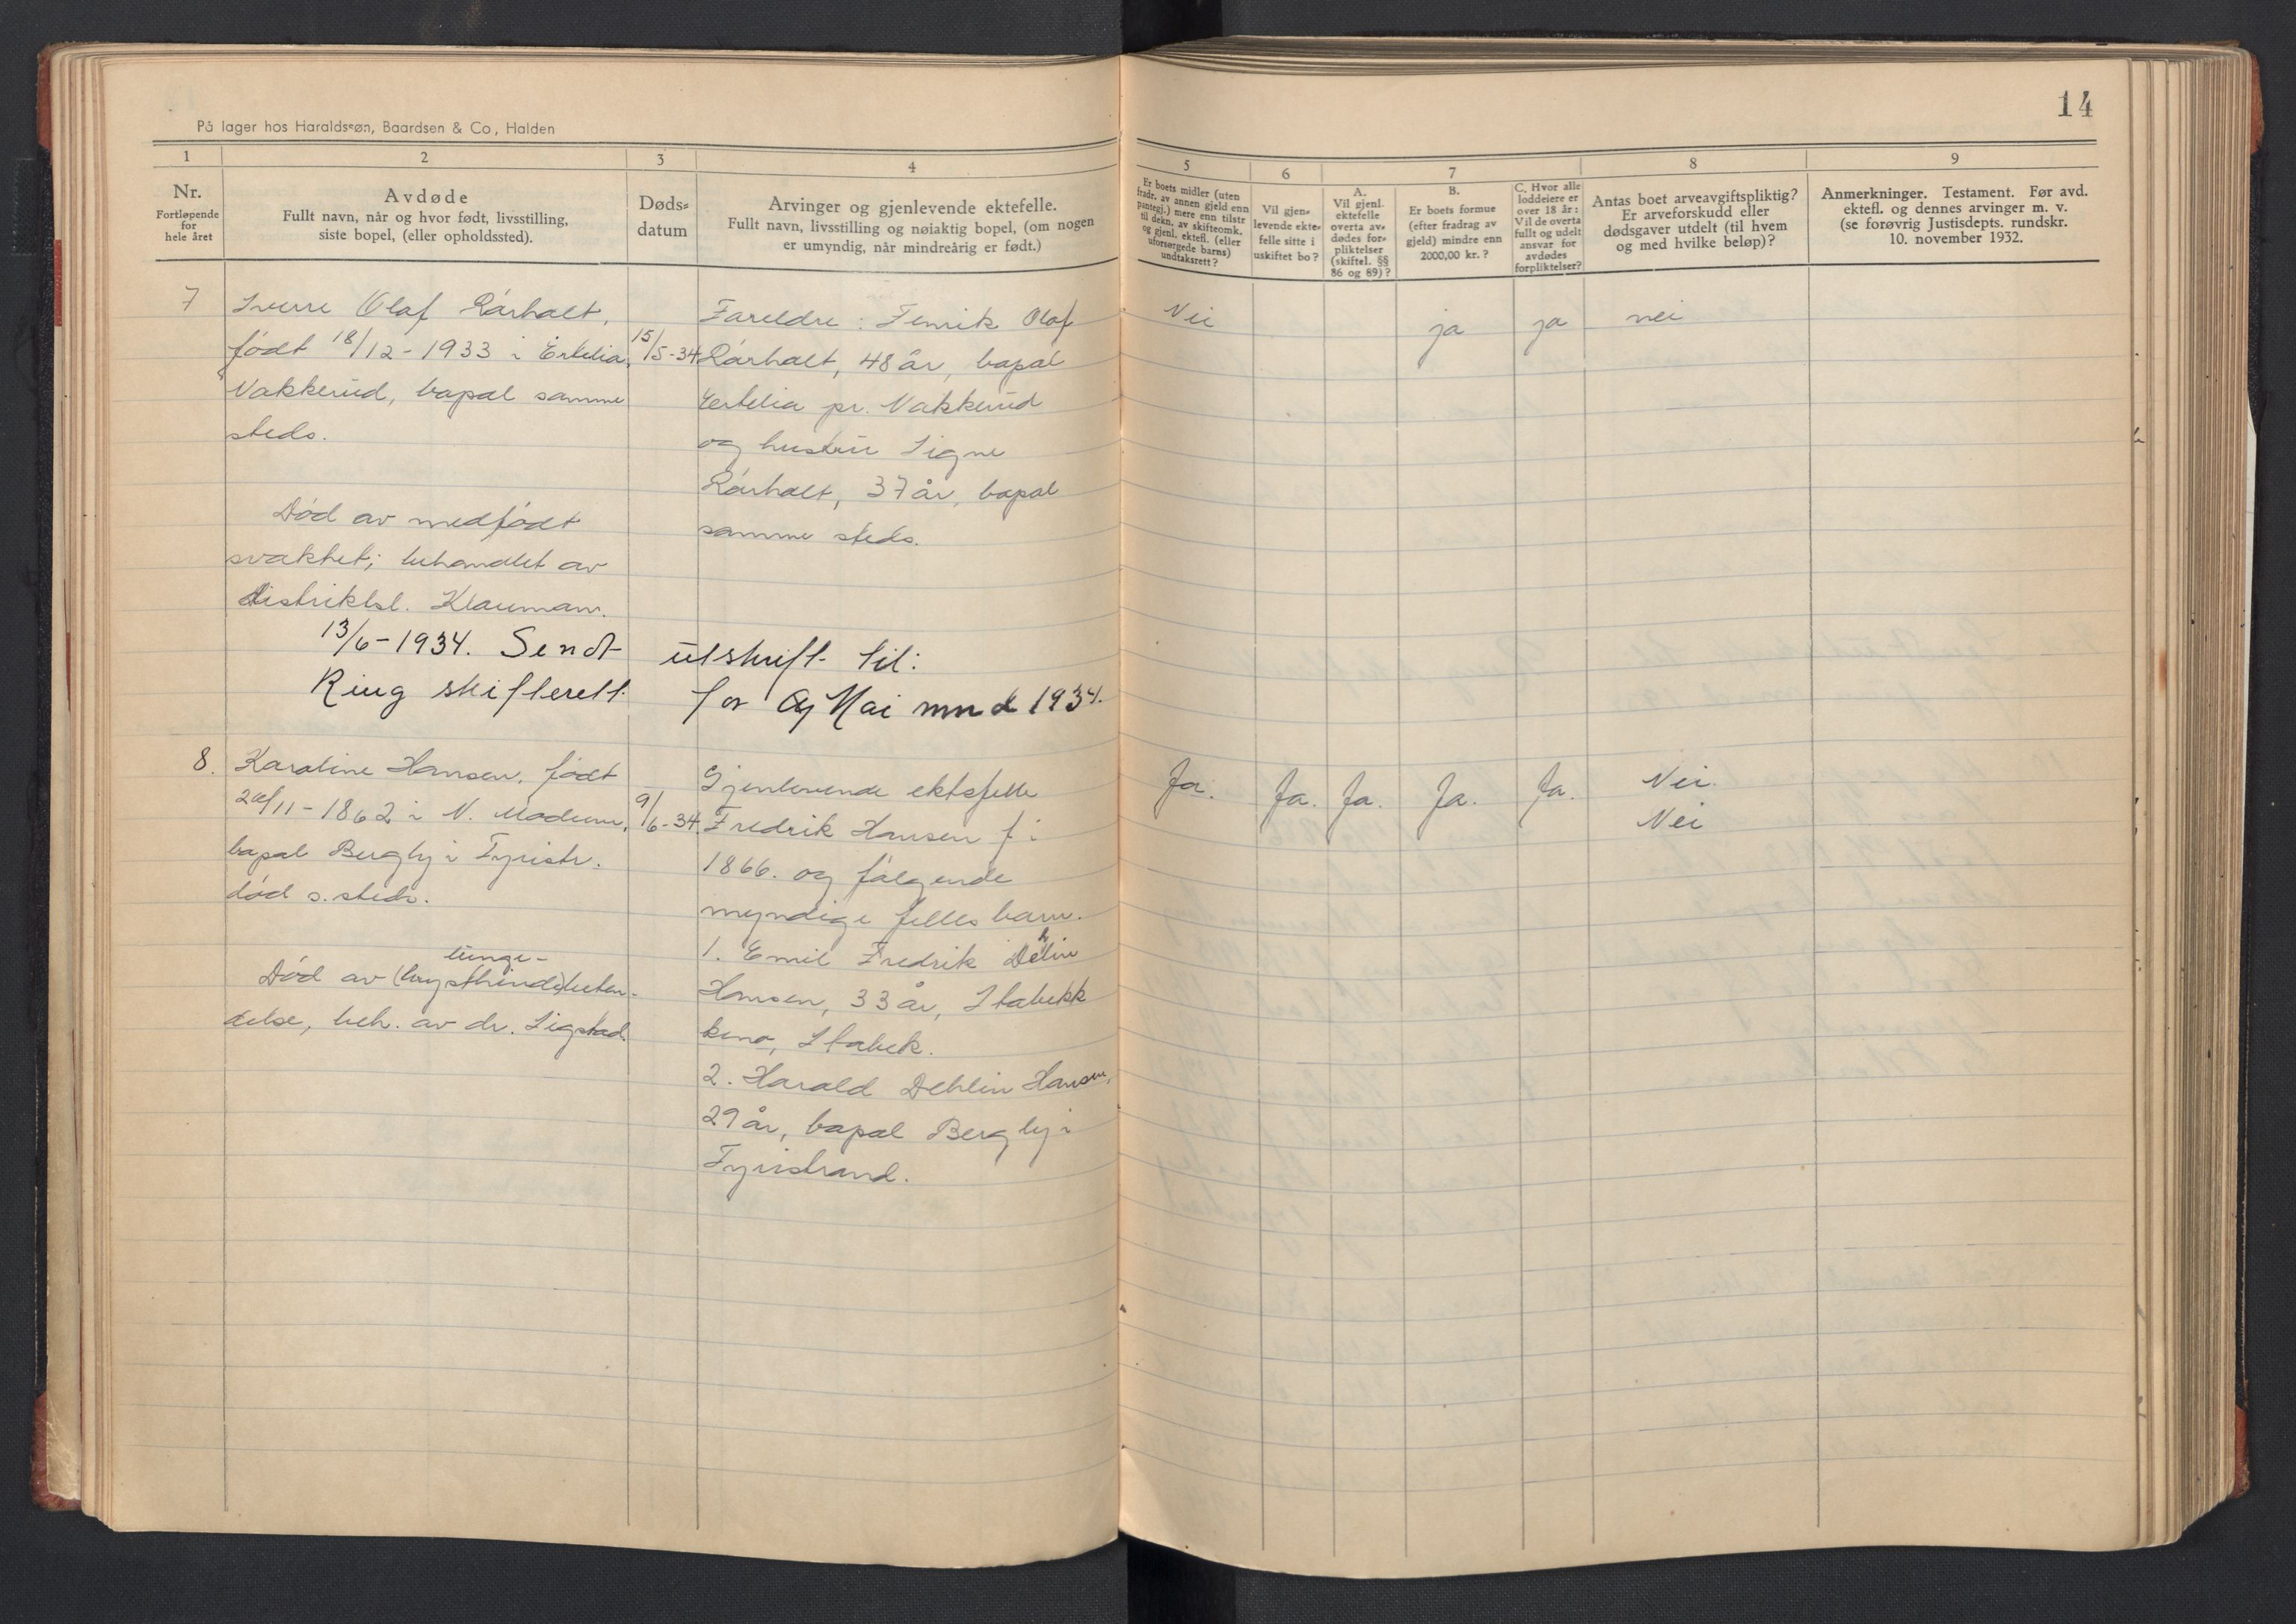 14
På lager hos Haraldssøn, Baardsen & Co, Halden
1
2
3
4
5
6
7
8
9
Nr.
Fortløpende
for
hele året
Avdøde
Fullt navn, når og hvor født, livsstilling,
siste bopel, (eller opholdssted).
Døds-
datum
Arvinger og gjenlevende ektefelle.
Fullt navn, livsstilling og nøiaktig bopel, (om nogen
er umyndig, når mindreårig er født.)
Er boets midler (uten
fradr. av annen gjeld enn
pantegj.) mere enn tilstr
til dekn. av skifteomk.
og gjenl. ektefl. (eller
uforsørgede barns)
undtaksrett?
Vil gjen-
levende ekte-
felle sitte i
uskiftet bo?
A.
Vil gjenl.
ektefelle
overta av-
dødes for-
pliktelser
(skiftel. §§
86 og 89)?
B.
Er boets formue
(efter fradrag av
gjeld) mindre enn
2000,00 kr.?
C. Hvor alle
loddeiere er
over 18 år:
Vil de overta
fullt og udelt
ansvar for
avdødes
forpliktelser?
Antas boet arveavgiftspliktig?
Er arveforskudd eller
dødsgaver utdelt (til hvem
og med hvilke beløp)?
Anmerkninger. Testament. Før avd.
ektefl. og dennes arvinger m. v.
(se forøvrig Justisdepts. rundskr.
10. november 1932.
7
Sverre Olaf Rørholt,
født 18/12-1933 i Ertelia,
Nakkerud, bopel samme
steds.
Død av medfødt
svakhet; behandlet av
distriktsl. Klaumann.
15/5-34
Foreldre: Fenrik Olaf
Rørholt, 48 år, bopel
Ertelia pr. Nakkerud
og hustru Signe
Rørholt, 37 år, bopel
samme steds.
Nei
ja
ja
nei
13/6-1934. Sendt utskrift til:
Ring skifterett for Mai mnd 1934.
8.
Karoline Hansen, født
/11-1862 i N. Modum,
bopel Bergly i Tyristr.
død s. steds.
lunge-
Død av (brysthinde)beten-
delse, beh. av dr. Sigstad.
9/6-34
Gjenlevende ektefelle
Fredrik Hansen f. i
1866. og følgende
myndige felles barn.
1. Emil Fredrik Dehlin
Hansen, 33 år, Stabekk
kino, Stabek.
2. Harald Dehlin Hansen,
29 år, bopel Bergly i
Tyristrand.
Ja.
Ja.
Ja.
Ja.
Ja.
Nei.
Nei